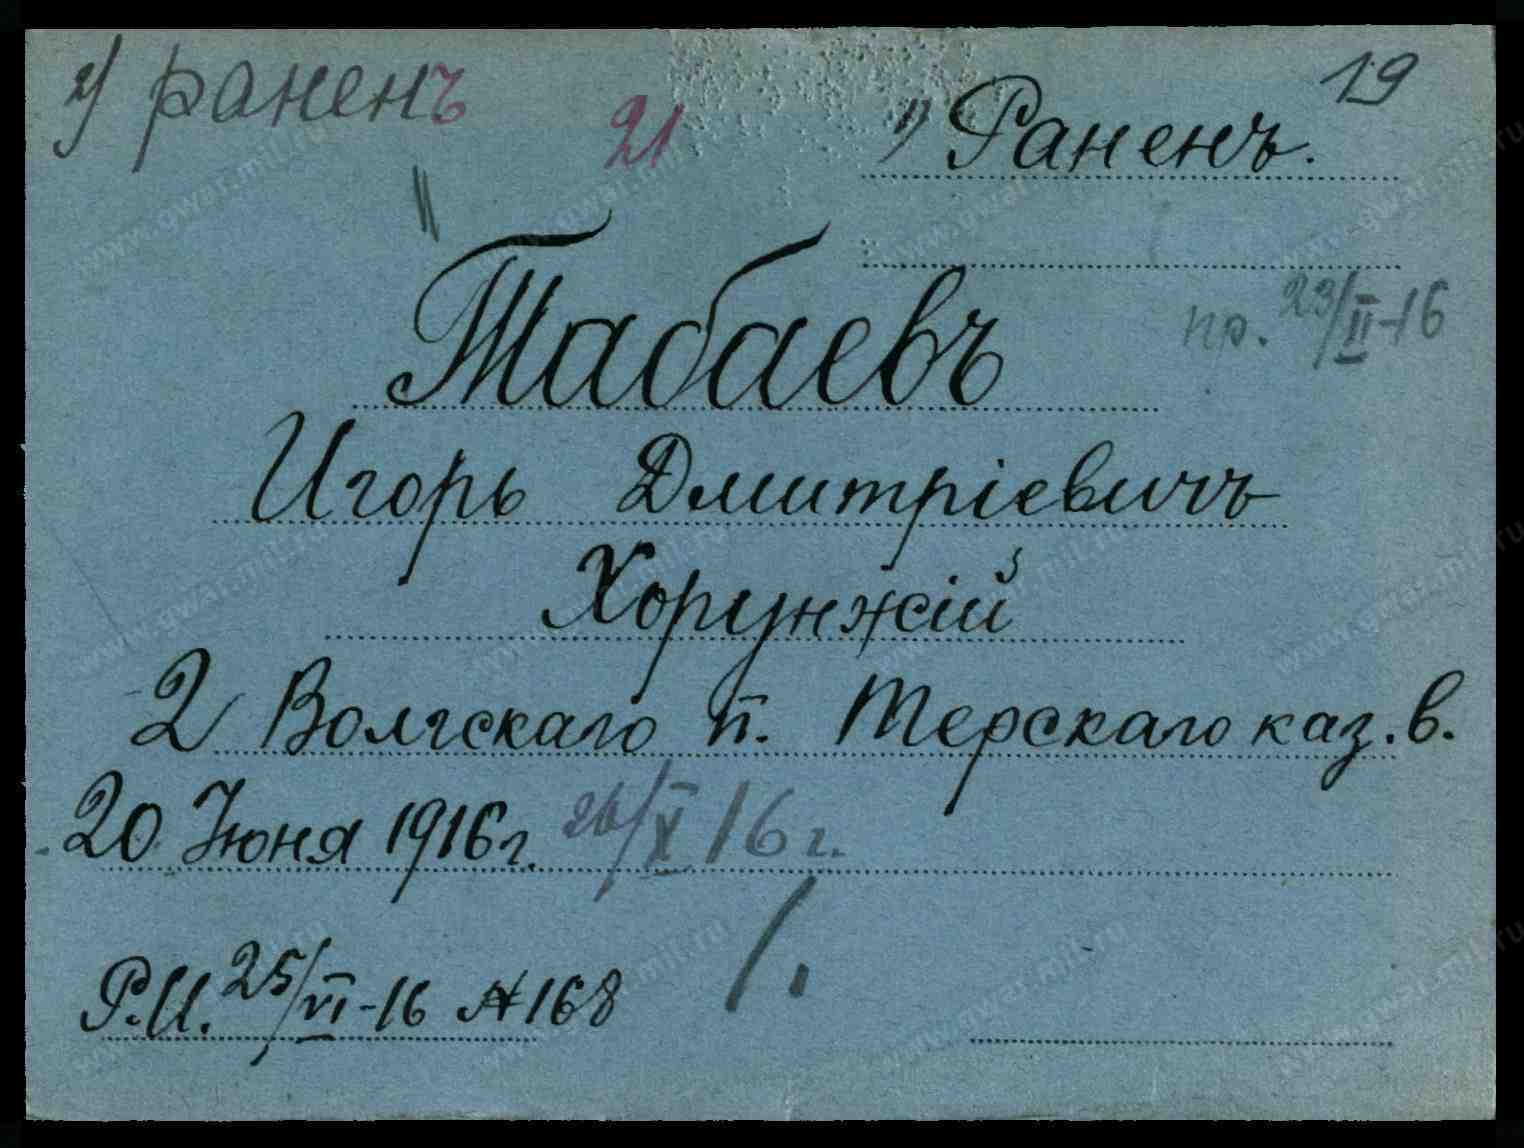 2) раненъ
21
19
1) Раненъ.
Табаевъ
пр. 23/II-16
Игорь Дмитріевичъ
Хорунжій
2 Волгскаго п. Терскаго каз. в.
20 Іюня 1916 г. 26/X 16 г.
Р.И. 25/VI-16 № 168
www.gwar.mil.ru